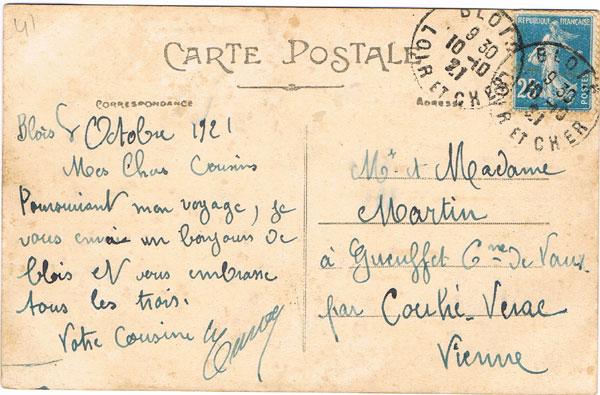 41
CARTE POSTALE
CORRESPONDANCE
ADRESSE
BLOIS
9 30
10-10
21
LOIR ET CHER
BLOIS
9 30
10-10
21
LOIR ET CHER
REPUBLIQUE FRANÇAISE
25
POSTES
Blois 8 Octobre 1921
Mes Chers Cousins
Poursuivant mon voyage, je
vous envoie un bonjour de
blois et vous embrasse
tous les trois.
Votre Cousine
Mr et Madame
Martin
à Gueuffet Cne de Vaux
par Couhé-Verac
Vienne